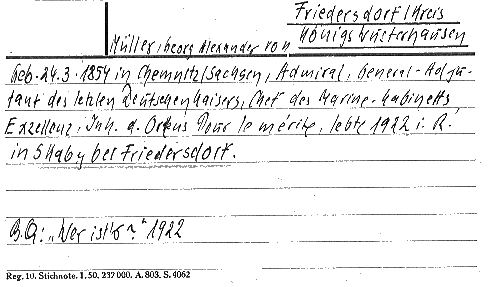 Friedersdorf/Kreis
Königswusterhausen
Müller, Georg Alexander von
Geb. 24.3.1854 in Chemnitz/Sachsen, Admiral, General-Adju-
tant des letzten Deutschen Kaisers, Chef des Marine-Kabinetts
Exzellenz, Inh. d. Ordens Pour le mérite, lebte 1922 i. R.
in Skaby bei Friedersdorf.
B.Q.: „Wer ist's?" 1922
Reg. 10. Stichnote. 1, 50, 237 000. A. 803. S. 4062